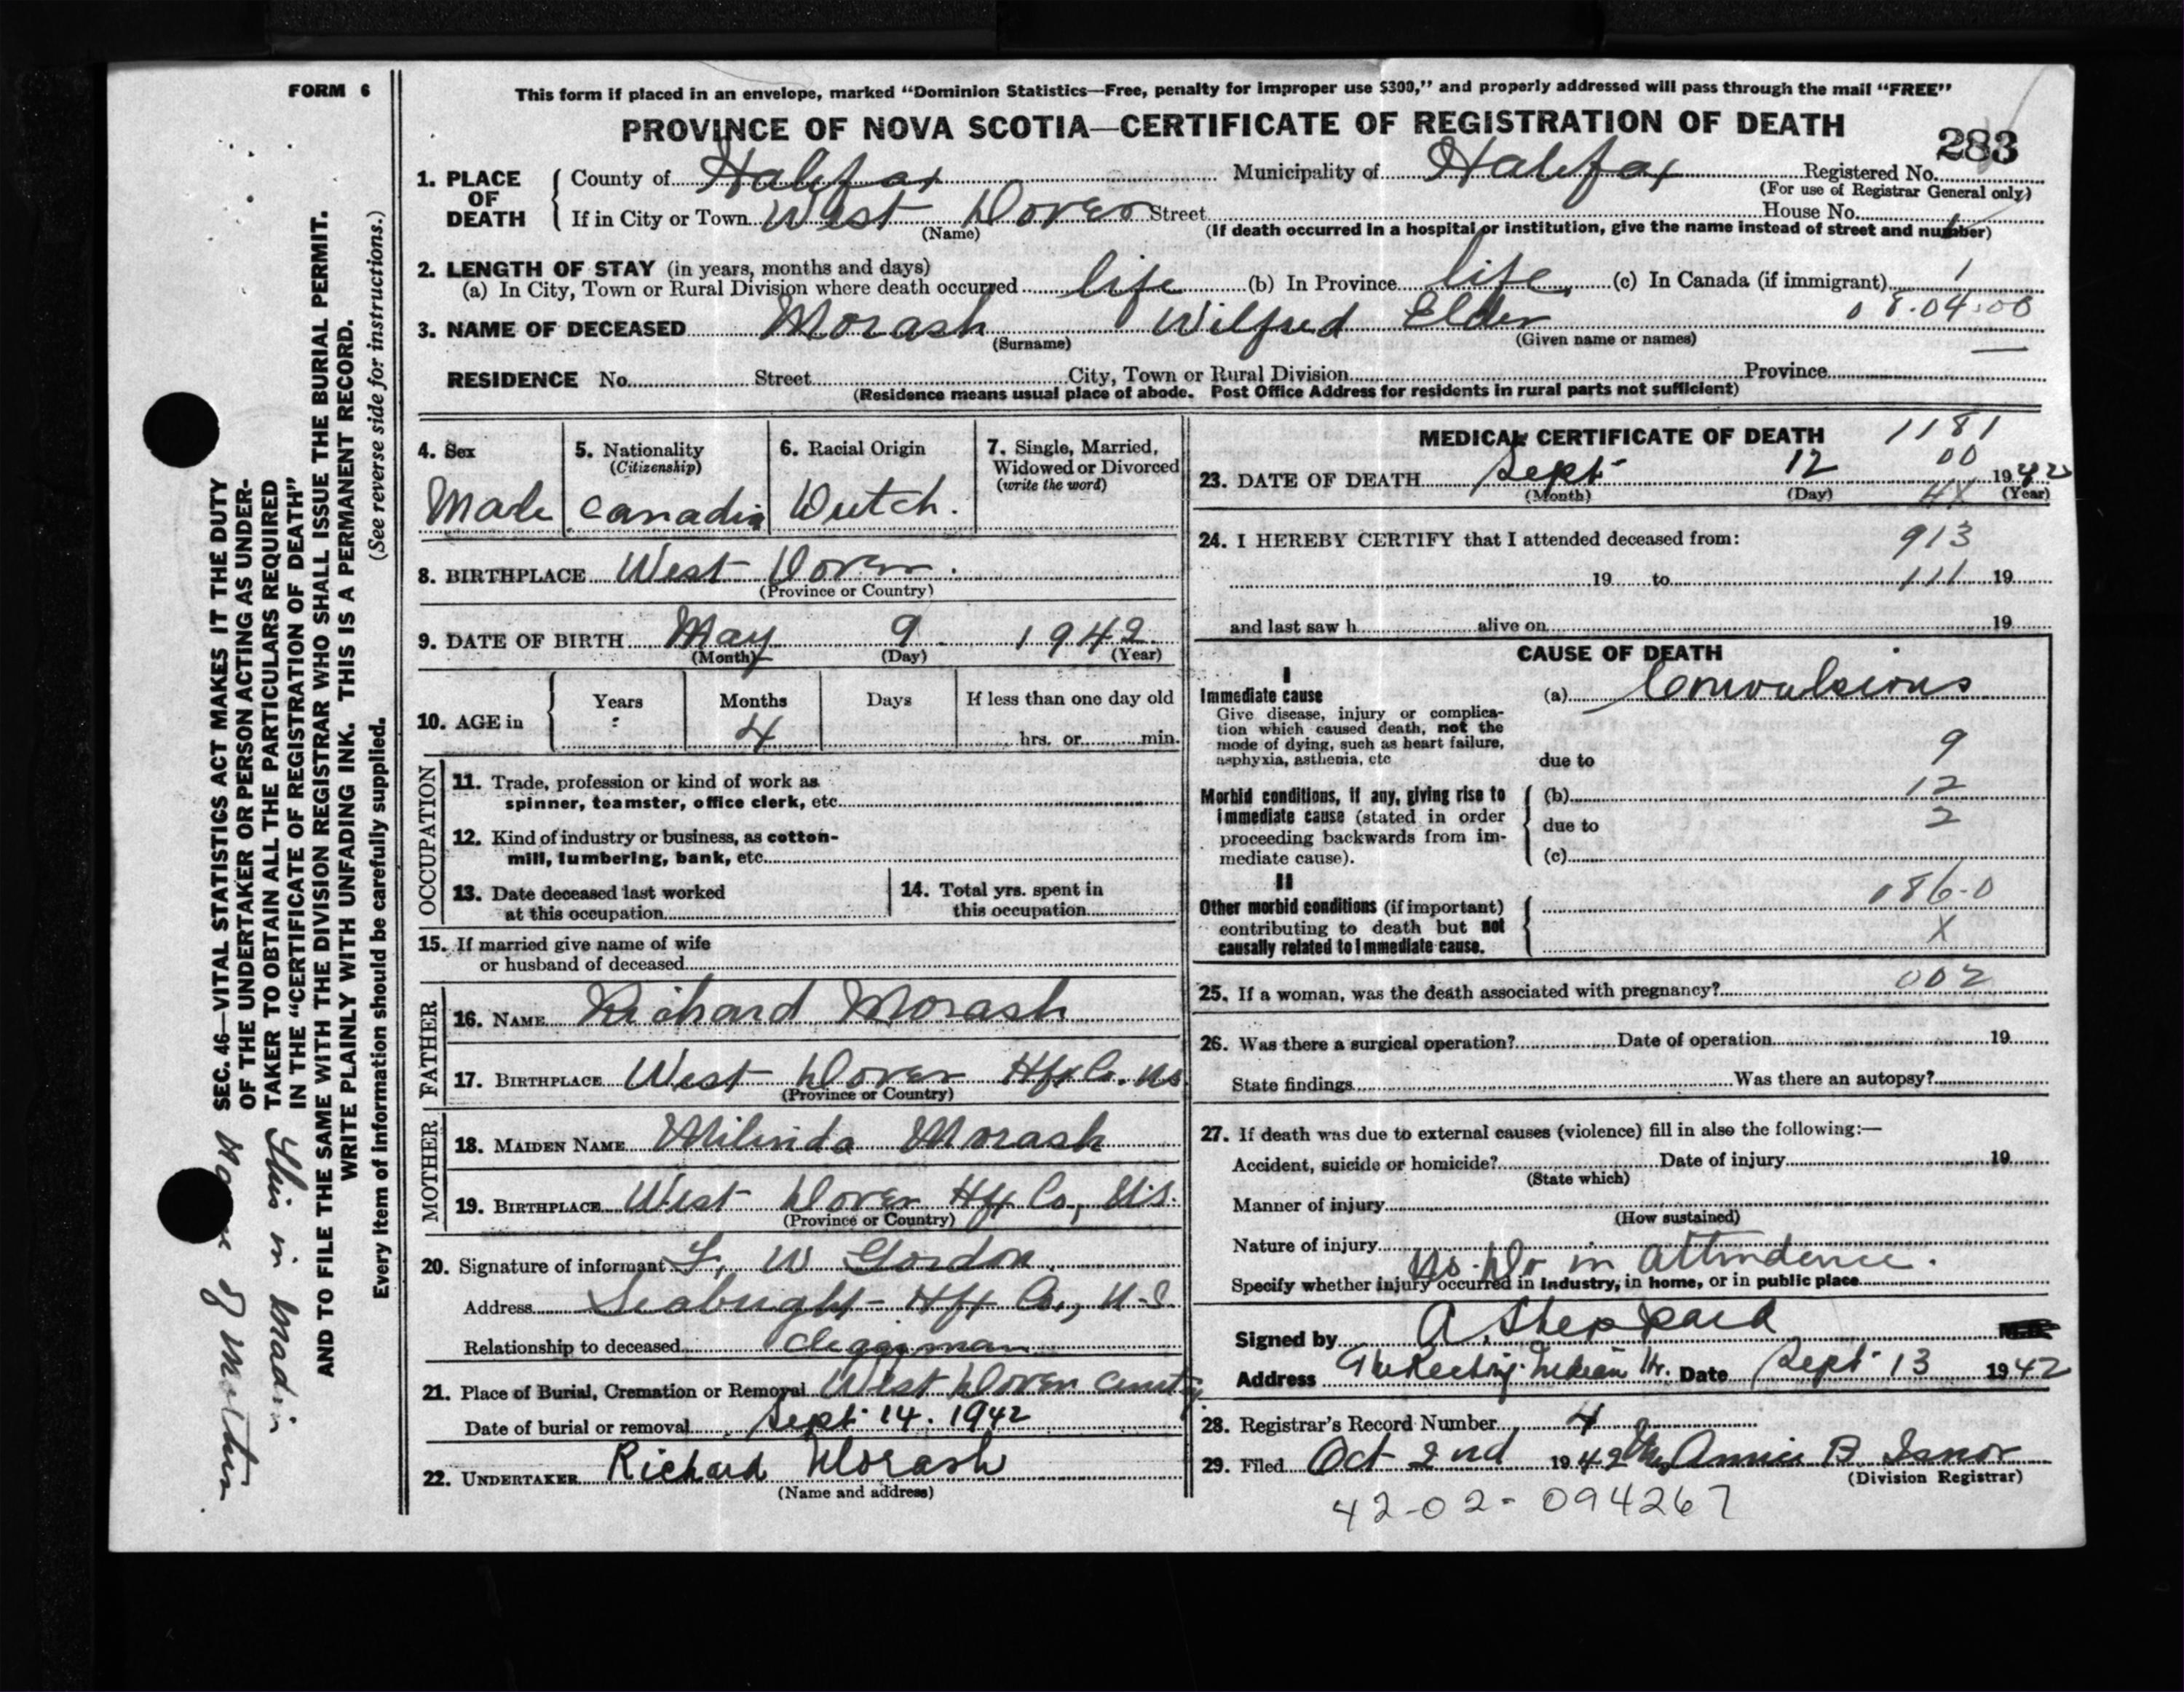 FORM 6
This form if placed in an envelope, marked "Dominion Statistics—Free, penalty for improper use $300," and properly addressed will pass through the mail "FREE"
PROVINCE OF NOVA SCOTIA—CERTIFICATE OF REGISTRATION OF DEATH
283
1. PLACE OF DEATH
County of Halifax Municipality of Halifax Registered No.
(For use of Registrar General only)
If in City or Town West Dover Street House No.
(Name) (If death occurred in a hospital or institution, give the name instead of street and number)
2. LENGTH OF STAY (in years, months and days)
(a) In City, Town or Rural Division where death occurred life (b) In Province life (c) In Canada (if immigrant) 1
08.04.00
3. NAME OF DECEASED Morash Wilfred Elder
(Surname) (Given name or names)
RESIDENCE No. Street City, Town or Rural Division Province
(Residence means usual place of abode. Post Office Address for residents in rural parts not sufficient)
4. Sex
Male
5. Nationality
(Citizenship)
Canadia
6. Racial Origin
Dutch.
7. Single, Married, Widowed or Divorced
(write the word)
8. BIRTHPLACE West Dover.
(Province or Country)
9. DATE OF BIRTH May 9 1942
(Month) (Day) (Year)
10. AGE in
Years Months Days If less than one day old
4 hrs. or min.
OCCUPATION
11. Trade, profession or kind of work as
spinner, teamster, office clerk, etc.
12. Kind of industry or business, as cotton-
mill, lumbering, bank, etc.
13. Date deceased last worked
at this occupation
14. Total yrs. spent in
this occupation
15. If married give name of wife
or husband of deceased
FATHER
16. NAME Richard Morash
17. BIRTHPLACE West Dover Hfx Co. N.S.
(Province or Country)
MOTHER
18. MAIDEN NAME Milinda Morash
19. BIRTHPLACE West Dover Hfx Co., N.S.
(Province or Country)
20. Signature of informant F. W Gordon
Address Seabright Hfx Co., N.S.
Relationship to deceased clergyman
21. Place of Burial, Cremation or Removal West Dover
Date of burial or removal Sept 14. 1942
22. UNDERTAKER Richard Morash
(Name and address)
MEDICAL CERTIFICATE OF DEATH
1181
00
23. DATE OF DEATH Sept 12 1942
(Month) (Day) (Year)
4X
24. I HEREBY CERTIFY that I attended deceased from:
913
19 to 111 19
and last saw h alive on 19
CAUSE OF DEATH
I
Immediate cause (a) Convulsions
Give disease, injury or complica-
tion which caused death, not the
mode of dying, such as heart failure,
asphyxia, asthenia, etc
due to 9
Morbid conditions, if any, giving rise to
immediate cause (stated in order
proceeding backwards from im-
mediate cause).
(b) 12
due to 2
(c)
II
Other morbid conditions (if important)
contributing to death but not
causally related to immediate cause.
086-0
X
25. If a woman, was the death associated with pregnancy? 002
26. Was there a surgical operation? Date of operation 19
State findings Was there an autopsy?
27. If death was due to external causes (violence) fill in also the following:—
Accident, suicide or homicide? Date of injury 19
(State which)
Manner of injury
(How sustained)
Nature of injury
No. Dr in attendence.
Specify whether injury occurred in industry, in home, or in public place
Signed by A. Sheppard
Address Indian Hr. Date Sept 13 1942
28. Registrar's Record Number 4
29. Filed Oct 2nd 1942 Mrs Annie B. Isnor
(Division Registrar)
42-02-094267
SEC. 46—VITAL STATISTICS ACT MAKES IT THE DUTY
OF THE UNDERTAKER OR PERSON ACTING AS UNDER-
TAKER TO OBTAIN ALL THE PARTICULARS REQUIRED
IN THE "CERTIFICATE OF REGISTRATION OF DEATH"
AND TO FILE THE SAME WITH THE DIVISION REGISTRAR WHO SHALL ISSUE THE BURIAL PERMIT.
WRITE PLAINLY WITH UNFADING INK. THIS IS A PERMANENT RECORD.
Every item of information should be carefully supplied. (See reverse side for instructions.)
This is Maiden
Name of Mother